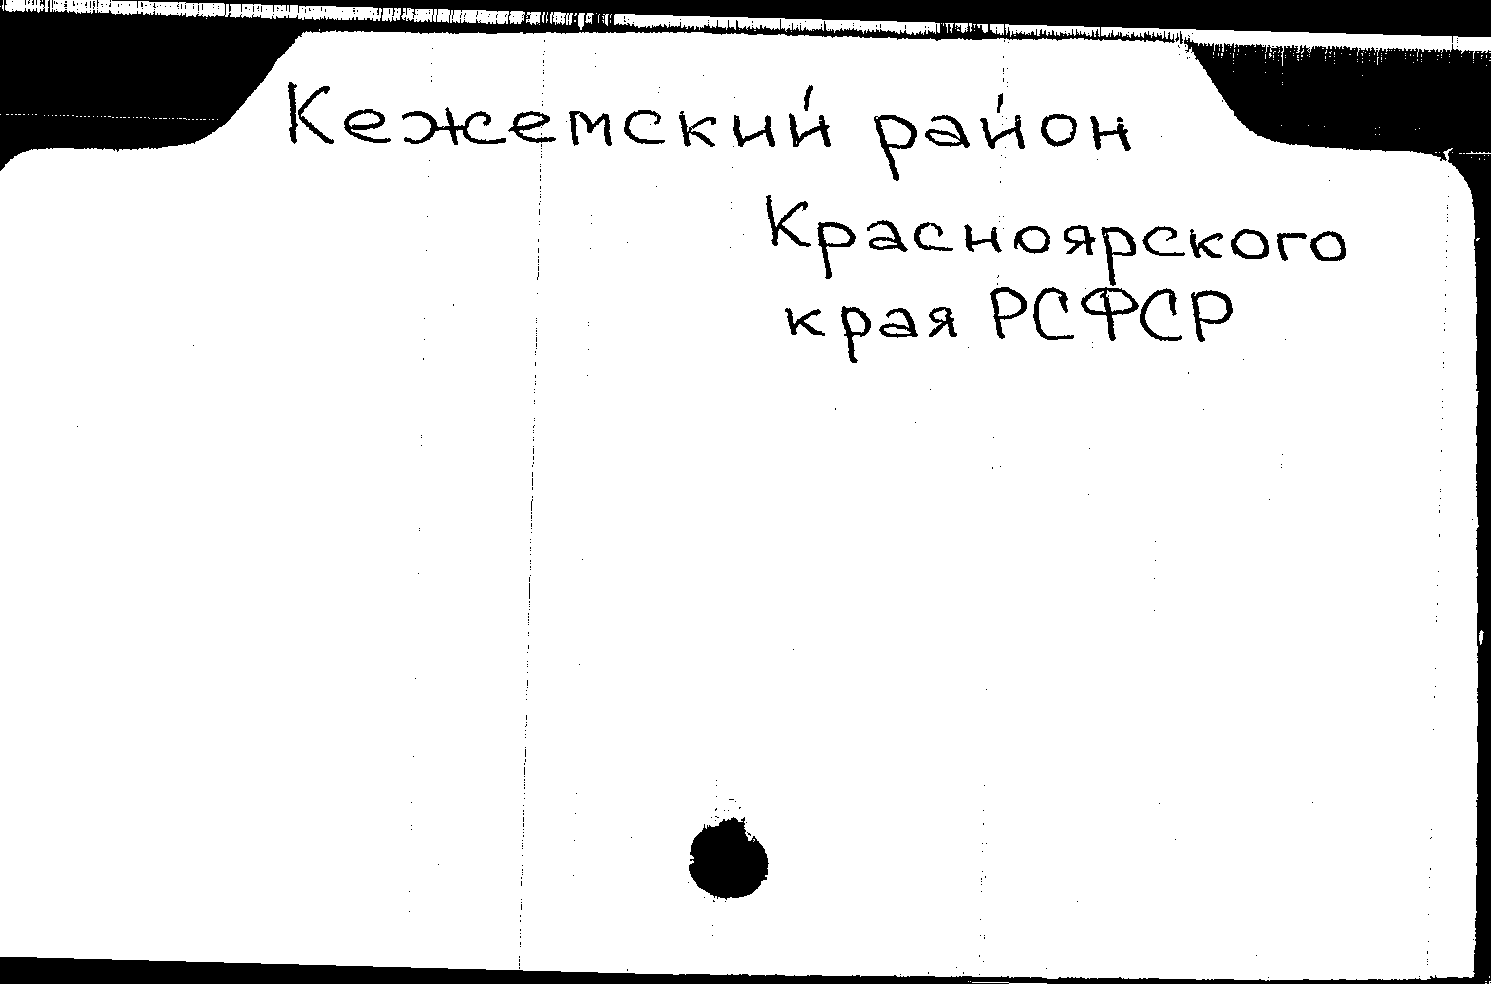 Кежемский район
Красноярского
края РСФСР